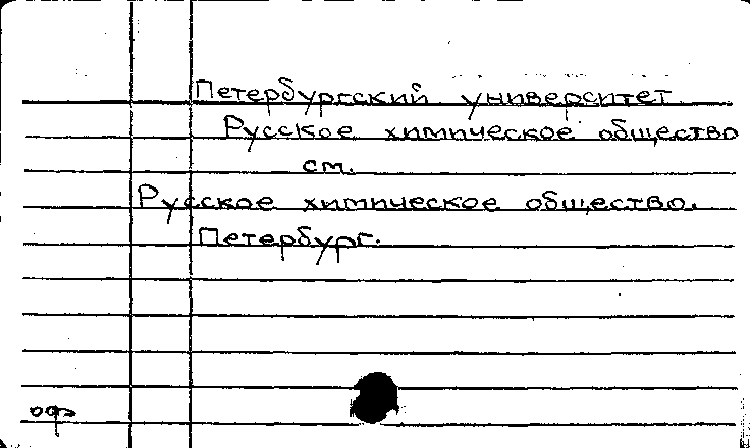 Петербургский университет.
Русское химическое общество
см.
Русское химическое общество.
Петербург.
оф